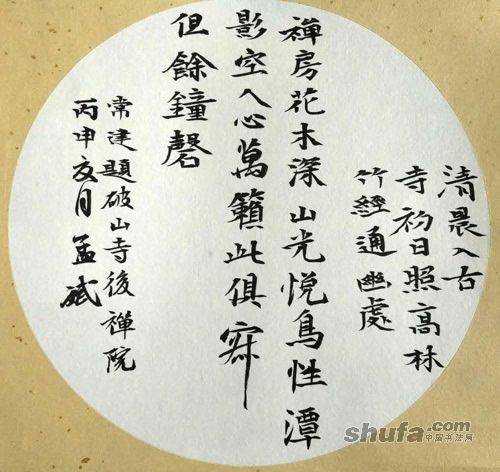 清晨入古
寺初日照高林
竹經通幽處
禪房花木深山光悅鳥性潭
影空人心萬籟此俱寂
但餘鐘磬
常建題破山寺後禪院
丙申亥月孟斌
shufa.com
中国书法网